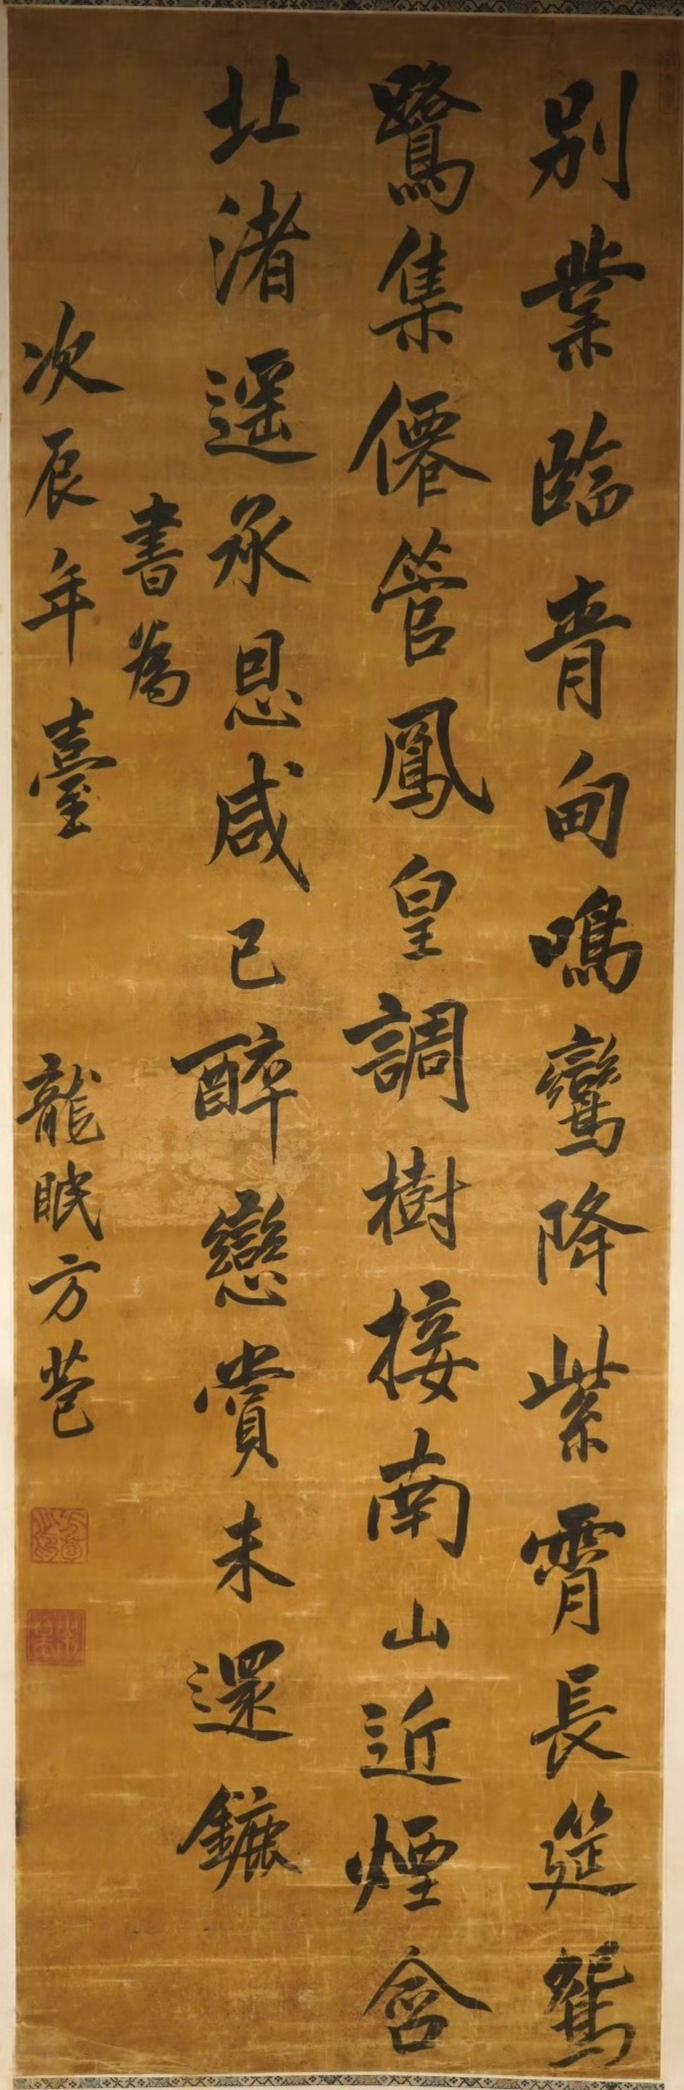 別業臨青甸鳴鸞降紫霄長筵鵷
鷺集僊管鳳皇調樹接南山近煙含
北渚遥承恩咸已醉戀賞未還鑣
書為
次辰年臺
龍眠方苞